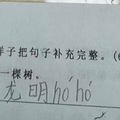 样子把句子补充完整。(6
一棵树。
龙明hóhó